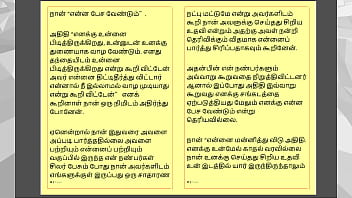 நான் “என்ன பேச வேண்டும்” .
அதிதி “எனக்கு உன்னை
பிடித்திருக்கிறது, உன்னுடன் எனக்கு
துணையாக வாழ வேண்டும். எனது
தந்தையிடம் உன்னை
பிடித்திருக்கிறது என்று கூறி விட்டேன்
அவர் என்னை திட்டிதீர்த்து விட்டார்
என்னால் நீ இல்லாமல் வாழ முடியாது
என்று கூறி விட்டேன்” எனக்
கூறினாள் நான் ஒரு நிமிடம் அதிர்ந்து
போனேன்.
ஏனென்றால் நான் இதுவரை அவளை
அப்படி பார்த்ததில்லை அவளை
பற்றியும் என்னைப் பற்றியும்
வகுப்பில் இருந்த என் நண்பர்கள்
சிலர் பேசும் போது நான் அவர்களிடம்
எங்களுக்குள் இருப்பது ஒரு சாதாரண
நட்பு மட்டுமே என்று அவர்களிடம்
கூறி நான் அவளுக்கு செய்தது சிறிய
உதவி என்றும் அதற்கு அவள் நன்றி
தெரிவிக்கும் விதமாக என்னைப்
பார்த்து சிரிப்பதாகவும் கூறினேன்.
அதன்பின் என் நண்பர்களும்
அவ்வாறு கூறுவதை நிறுத்திவிட்டனர்
ஆனால் இப்போது அதிதி இவ்வாறு
கூறுவது எனக்கு சங்கடத்தை
ஏற்படுத்தியது மேலும் எனக்கு என்ன
பேச வேண்டும் என்று
தெரியவில்லை.
நான் “என்னை மன்னித்து விடு அதிதி.
எனக்கு உன்மேல் காதல் வரவில்லை
நான் உனக்கு செய்தது சிறிய உதவி
உன் இடத்தில் யார் இருந்திருந்தாலும்